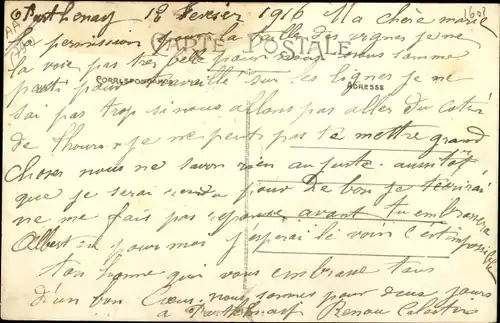 Parthenay 12 Fevrier 1916 Ma chère marie
la permission pour la taille des vignes je ne
CARTE POSTALE
la voie pas très belle pour nous nous somme
CORRESPONDANCE
ADRESSE
parti pour travaille sur les lignes je ne
sai pas trop si nous allons pas aller du coter
de thouars je ne peut pas te mettre grand
choses nous ne savon rien au juste aussitot
que je serai pour de bon je técrirai
ne me fais pas reponse avant tu embrassera
Albert pour moi j'espérai le voir c'est impossible
ton homme qui vous embrasse tous
d'un bon Coeur nous sommes pour deux jours
a Parthenay Renou Celestin